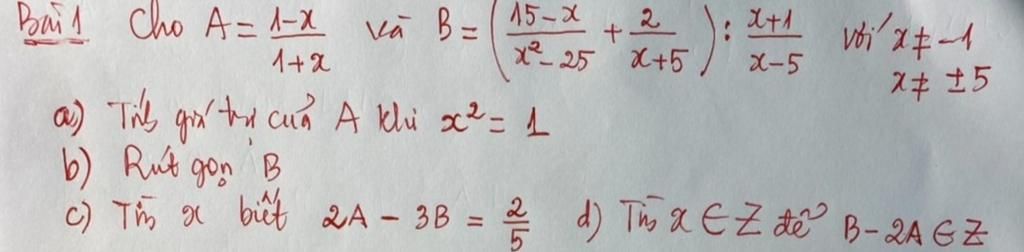 Bài 1 Cho A = \frac{1-x}{1+x} và B = \left( \frac{15-x}{x^2-25} + \frac{2}{x+5} \right) : \frac{x+1}{x-5} với x ≠ -1
x ≠ ±5
a) Tính giá trị của A khi x² = 1
b) Rút gọn B
c) Tìm x biết 2A - 3B = \frac{2}{5} d) Tìm x ∈ Z để B - 2A ∈ Z